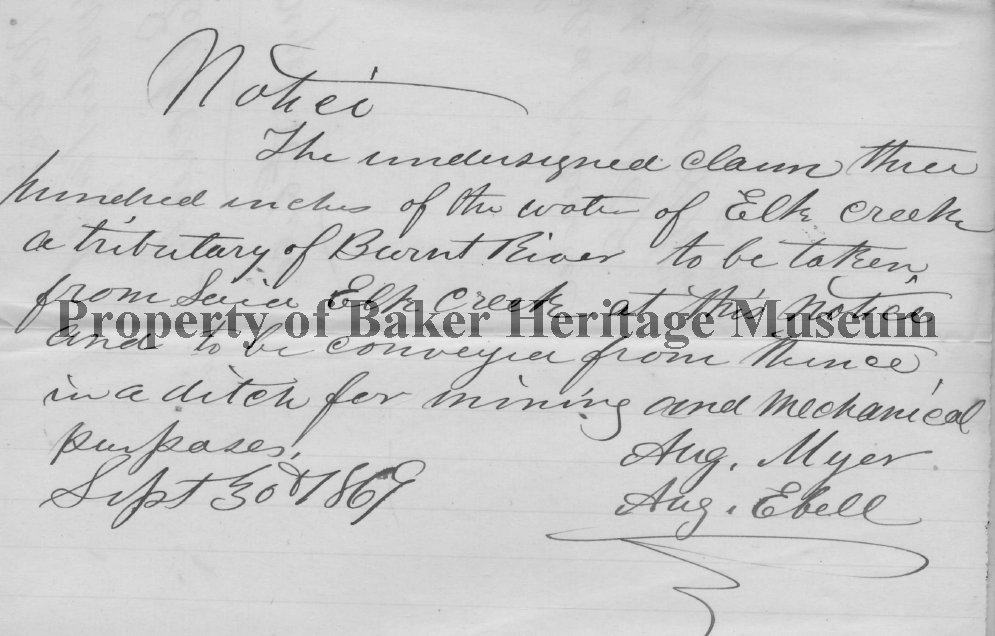 Notice
The undersigned claim three
hundred inches of the water of Elk creek
a tributary of Burnt River to be taken
from Said Elk creek at this notice
Property of Baker Heritage Museum
and to be conveyed from thence
in a ditch for mining and mechanical
purposes.
Aug. Myer
Sept 30th 1869
Aug. Ebell